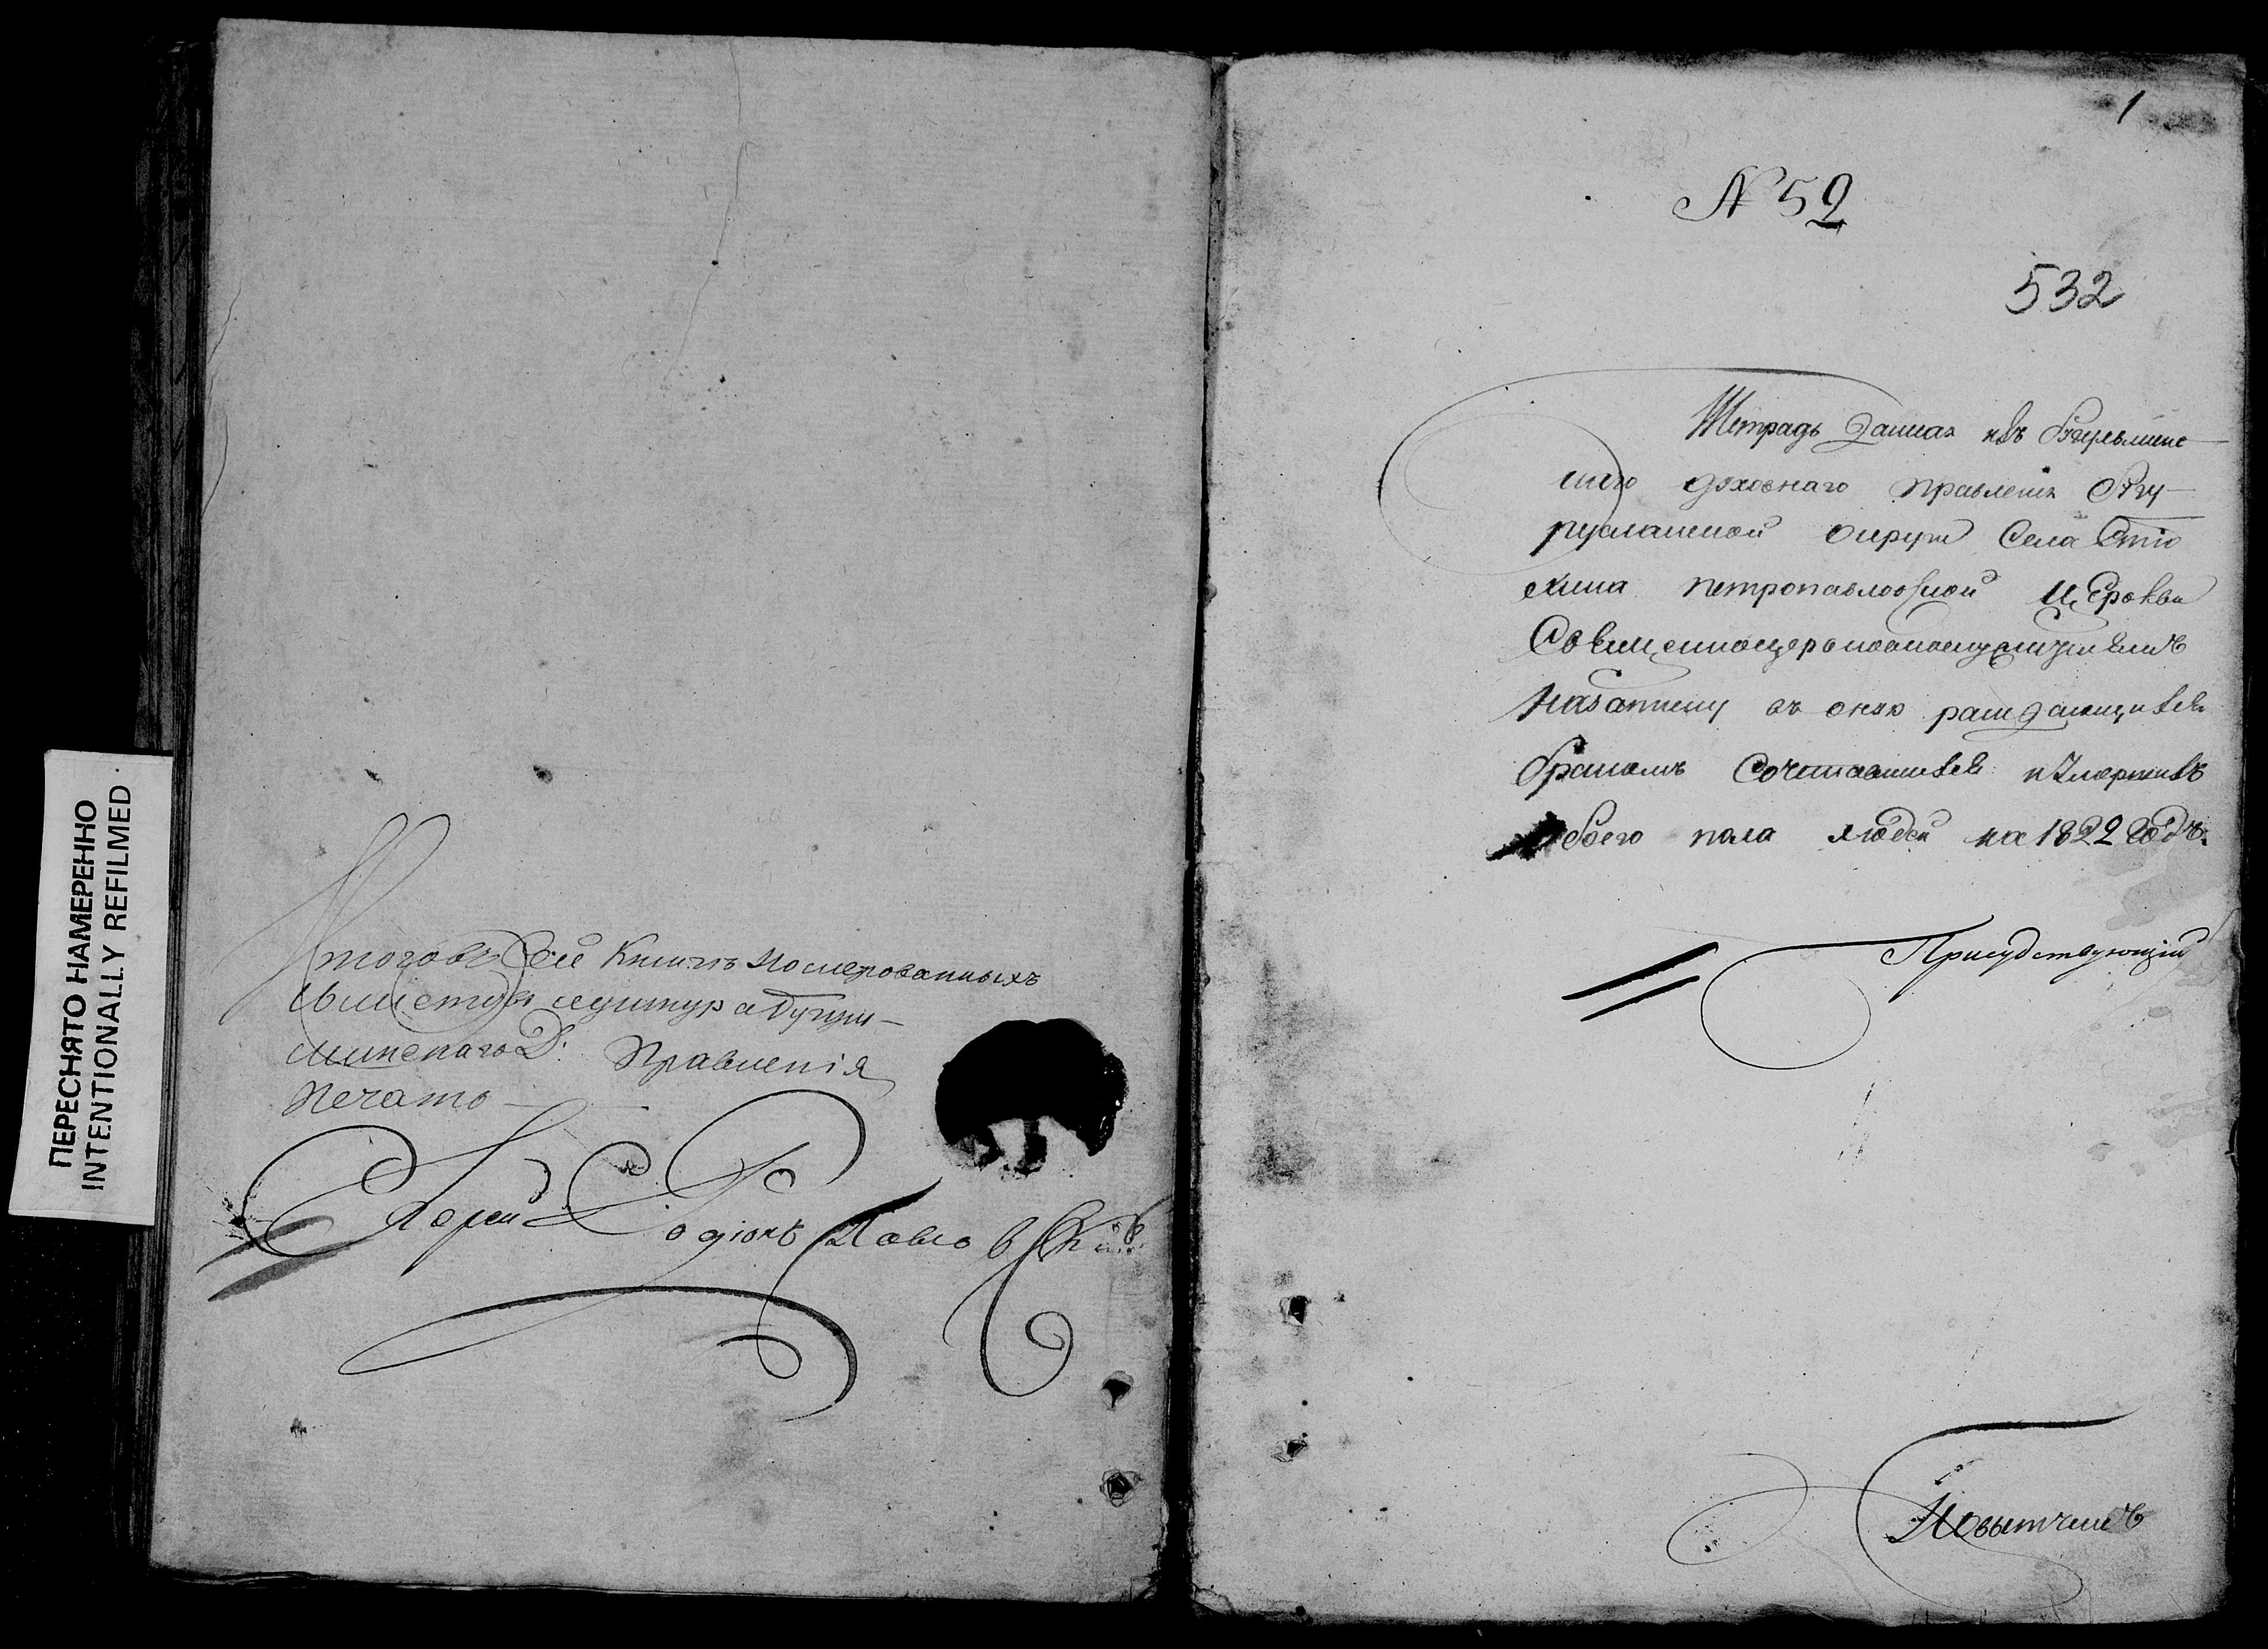 ПЕРЕСНЯТО НАМЕРЕННО
INTENTIONALLY REFILMED
Итого въ Сей Книги номерованныхъ
Правленія
Печать
Іерей Родіонъ Павло
1
N 52
532
Тетрадь Данная изъ
духовнаго правленія Бугу
русланской округи Села
Петропавловской Церкви
Священноцерковнослужителямъ
На записку въ оную раждающихся
бракомъ Сочетавшихся и умершихъ
обоего пола людей на 1822 годъ.
Присудствующій
Повытчикъ